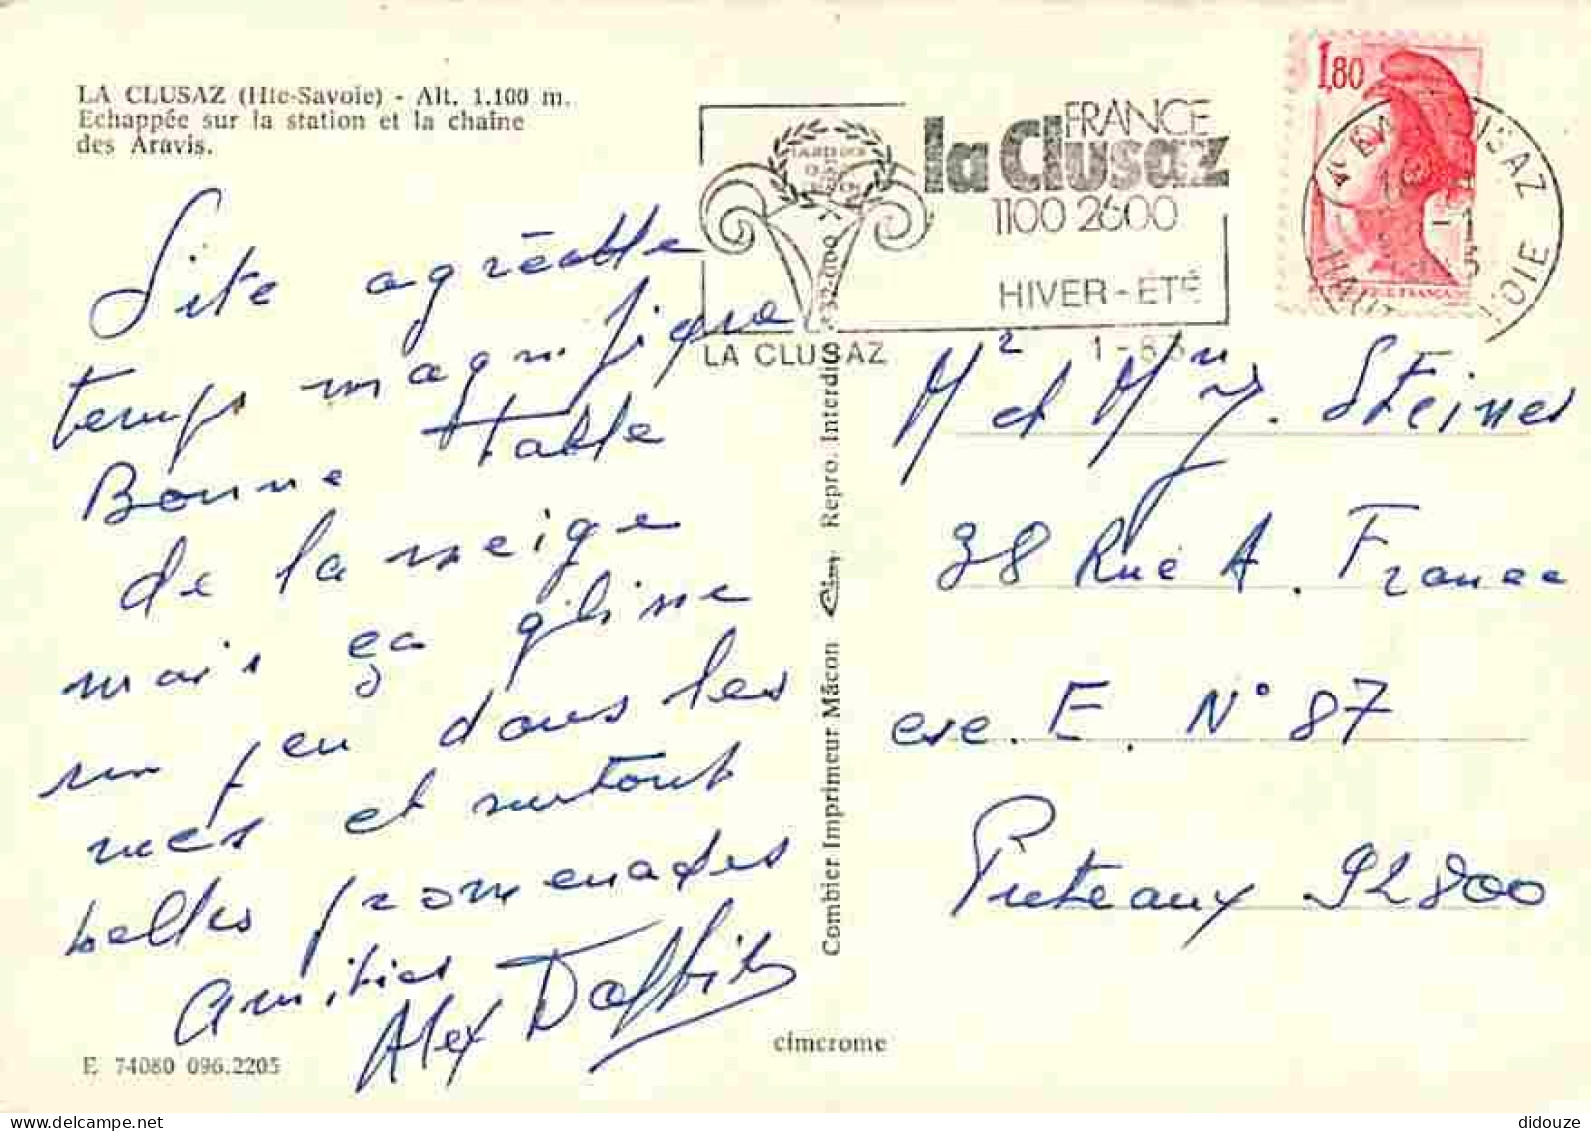 LA CLUSAZ (Hte-Savoie) - Alt. 1.100 m.
Echappée sur la station et la chaîne
des Aravis.
Site agréable
temps magnifique
Bonne table
de la neige
mais ça glisse
un peu dans les
rues et surtout
belles promenades
Amitiés
Alex
E 74080 096.2205
Combier Imprimeur Mâcon Cim Repro. Interdite
cimcrome
FRANCE
la Clusaz
1100 2600
HIVER - ÉTÉ
LA CLUSAZ
1,80
Mr et Mme J. Steiner
38 Rue A. France
esc. E. N° 87
Puteaux 92800
didouze